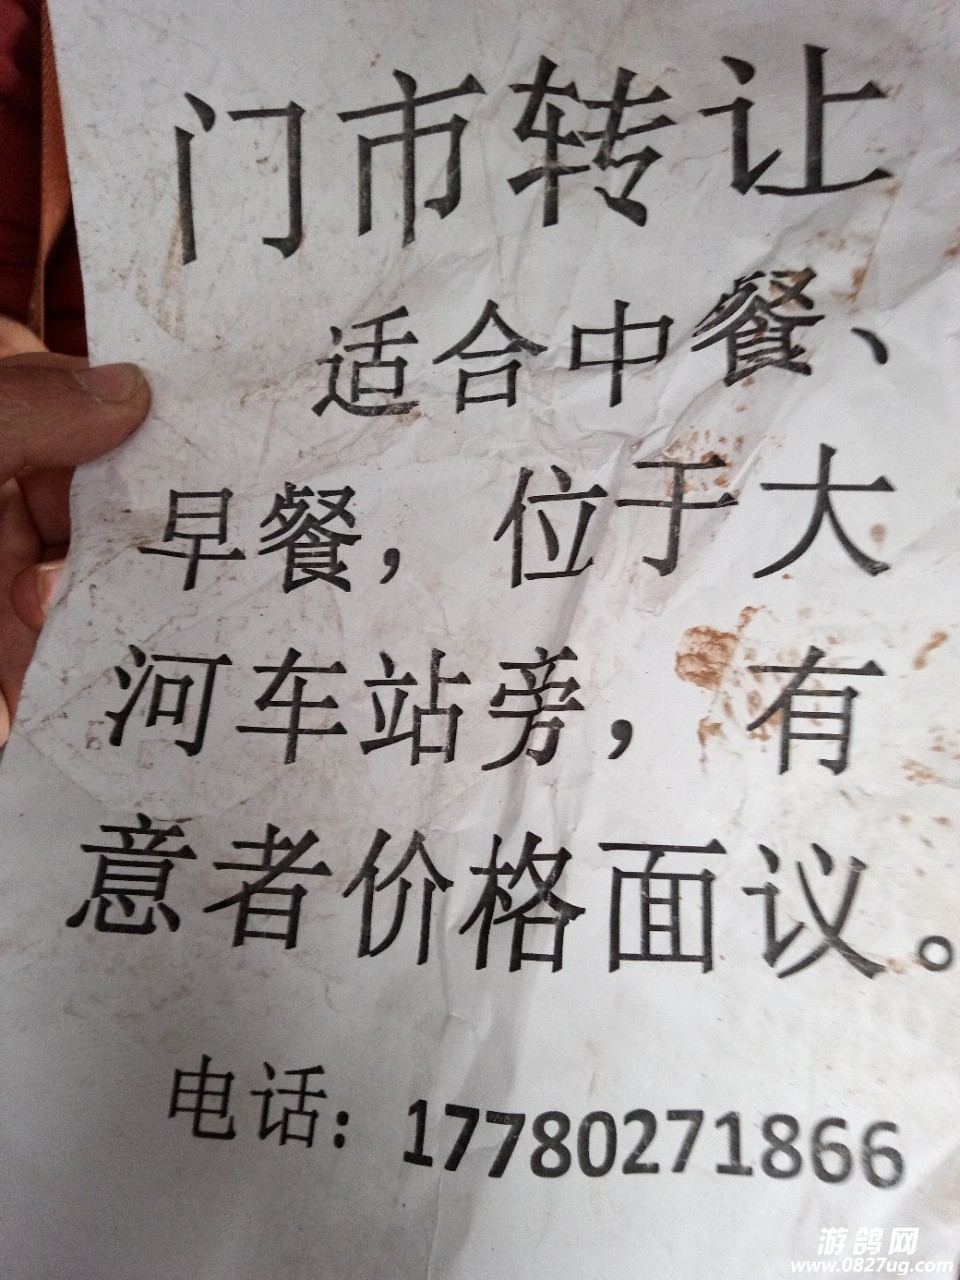 门市转让
适合中餐、
早餐，位于大
河车站旁，有
意者价格面议。
电话：17780271866
游鸽网
www.0827ug.com